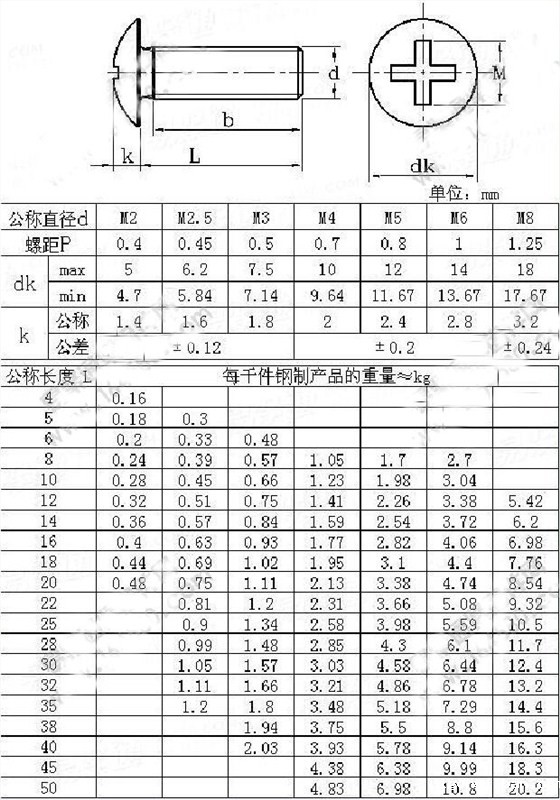 d
M
b
k L dk
单位: mm
公称直径d M2 M2.5 M3 M4 M5 M6 M8
螺距P 0.4 0.45 0.5 0.7 0.8 1 1.25
dk max 5 6.2 7.5 10 12 14 18
min 4.7 5.84 7.14 9.64 11.67 13.67 17.67
k 公称 1.4 1.6 1.8 2 2.4 2.8 3.2
公差 ±0.12 ±0.2 ±0.24
公称长度 L 每千件钢制产品的重量≈kg
4 0.16
5 0.18 0.3
6 0.2 0.33 0.48
8 0.24 0.39 0.57 1.05 1.7 2.7
10 0.28 0.45 0.66 1.23 1.98 3.04
12 0.32 0.51 0.75 1.41 2.26 3.38 5.42
14 0.36 0.57 0.84 1.59 2.54 3.72 6.2
16 0.4 0.63 0.93 1.77 2.82 4.06 6.98
18 0.44 0.69 1.02 1.95 3.1 4.4 7.76
20 0.48 0.75 1.11 2.13 3.38 4.74 8.54
22 0.81 1.2 2.31 3.66 5.08 9.32
25 0.9 1.34 2.58 3.98 5.59 10.5
28 0.99 1.48 2.85 4.3 6.1 11.7
30 1.05 1.57 3.03 4.58 6.44 12.4
32 1.11 1.66 3.21 4.86 6.78 13.2
35 1.2 1.8 3.48 5.18 7.29 14.4
38 1.94 3.75 5.5 8.8 15.6
40 2.03 3.93 5.78 9.14 16.3
45 4.38 6.38 9.99 18.3
50 4.83 6.98 10.8 20.2